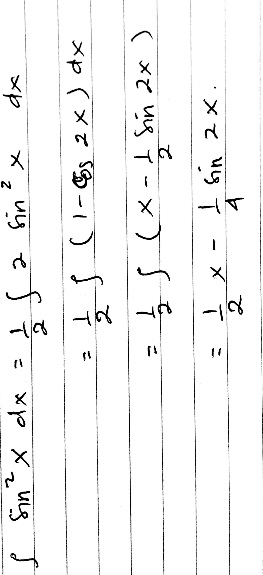 ∫ sin² x dx = 1/2 ∫ 2 sin² x dx
= 1/2 ∫ (1 - cos 2x) dx
= 1/2 ∫ (x - 1/2 sin 2x)
= 1/2 x - 1/4 sin 2x.